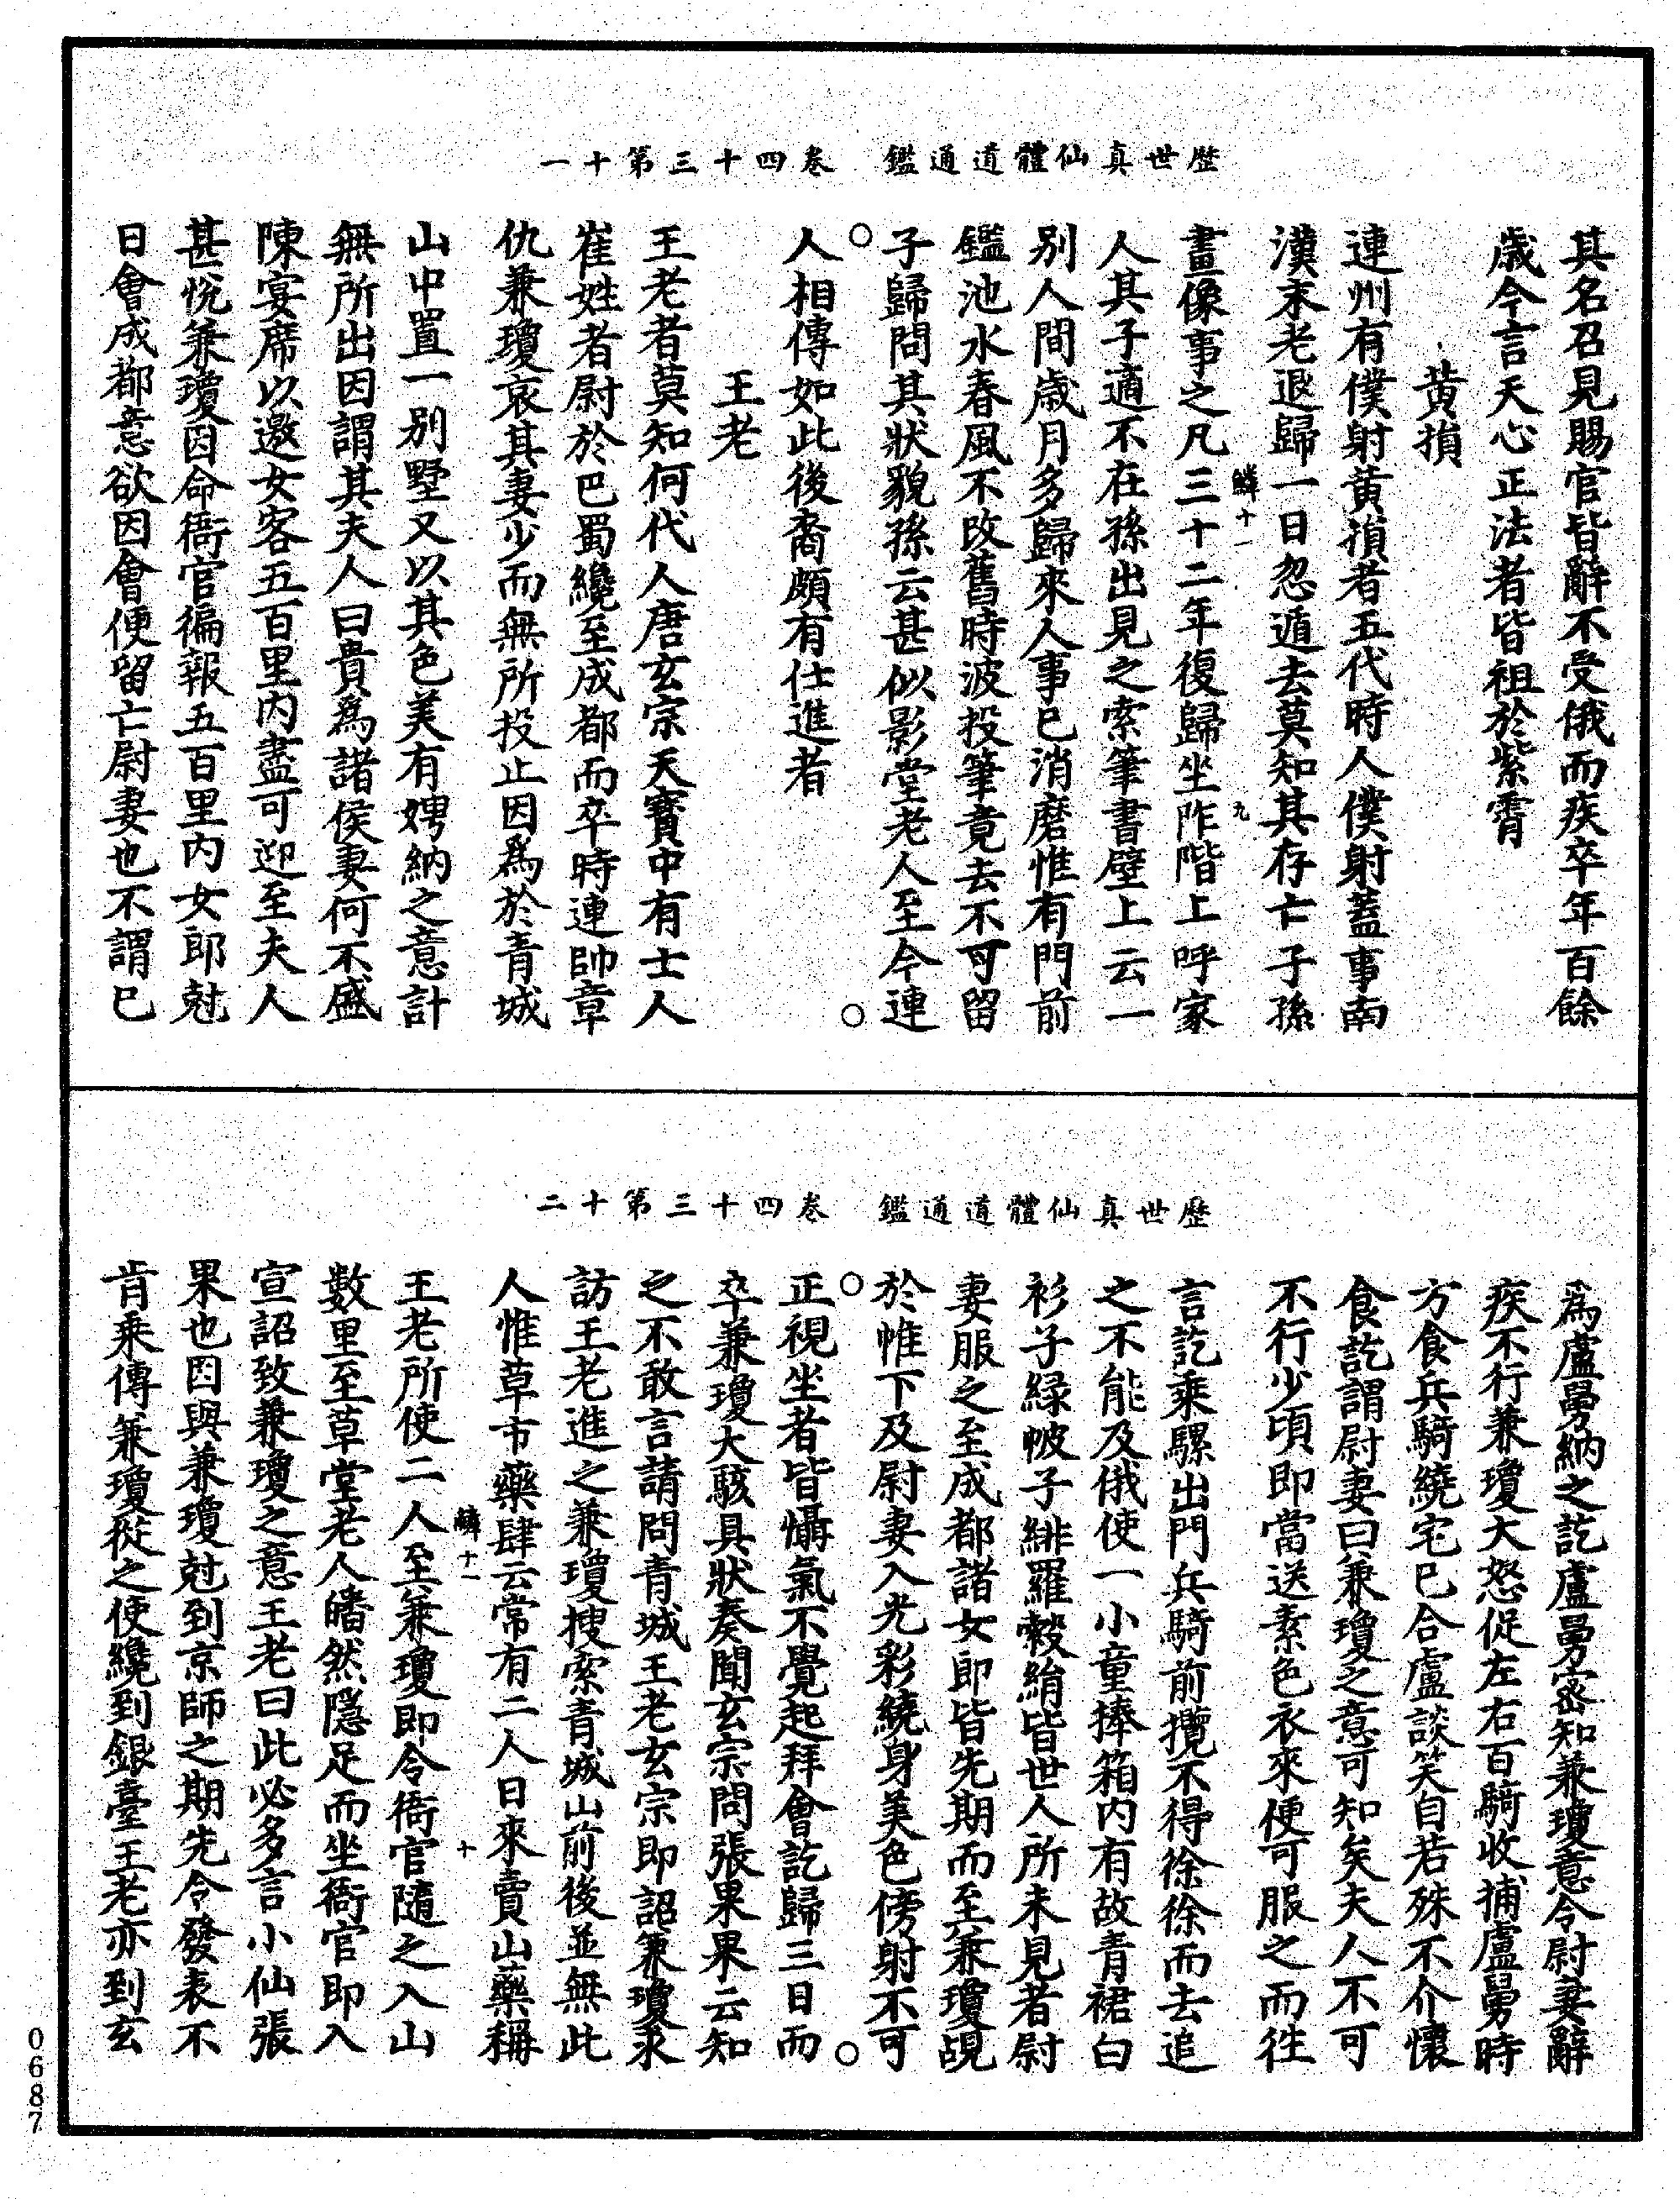 歷世真仙體道通鑑　卷四十三第十一
其名召見賜官皆辭不受俄而疾卒年百餘
歲今言天心正法者皆祖於紫霄
黃損
連州有僕射黃損者五代時人僕射蓋事南
漢末老退歸一日忽遁去莫知其存亡子孫
鱗十一　九
畫像事之凡三十二年復歸坐阼階上呼家
人其子適不在孫出見之索筆書壁上云一
別人間歲月多歸來人事已消磨惟有門前
鑑池水春風不改舊時波投筆竟去不可留
子歸問其狀貌孫云甚似影堂老人至今連
人相傳如此後裔頗有仕進者
王老
王老者莫知何代人唐玄宗天寶中有士人
崔姓者尉於巴蜀纔至成都而卒時連帥章
仇兼瓊哀其妻少而無所投止因為於青城
山中置一別墅又以其色美有娉納之意計
無所出因謂其夫人曰貴為諸侯妻何不盛
陳宴席以邀女客五百里內盡可迎至夫人
甚悅兼瓊因命衙官徧報五百里內女郎尅
日會成都意欲因會便留亡尉妻也不謂已
歷世真仙體道通鑑　卷四十三第十二
為盧舅納之訖盧舅密知兼瓊意令尉妻辭
疾不行兼瓊大怒促左右百騎收捕盧舅時
方食兵騎繞宅已合盧談笑自若殊不介懷
食訖謂尉妻曰兼瓊之意可知矣夫人不可
不行少頃即當送素色衣來便可服之而往
言訖乘騾出門兵騎前攬不得徐徐而去追
之不能及俄使一小童捧箱內有故青裙白
衫子緑帔子緋羅縠絹皆世人所未見者尉
妻服之至成都諸女即皆先期而至兼瓊覘
於帷下及尉妻入光彩繞身美色傍射不可
正視坐者皆懾氣不覺起拜會訖歸三日而
卒兼瓊大駭具狀奏聞玄宗問張果果云知
之不敢言請問青城王老玄宗即詔兼瓊求
訪王老進之兼瓊搜索青城山前後並無此
人惟草市藥肆云常有二人日來賣山藥稱
鱗十一　十
王老所使二人至兼瓊即令衙官隨之入山
數里至草堂老人皤然隱足而坐衙官即入
宣詔致兼瓊之意王老曰此必多言小仙張
果也因與兼瓊尅到京師之期先令發表不
肯乘傳兼瓊從之使纔到銀臺王老亦到玄
0687